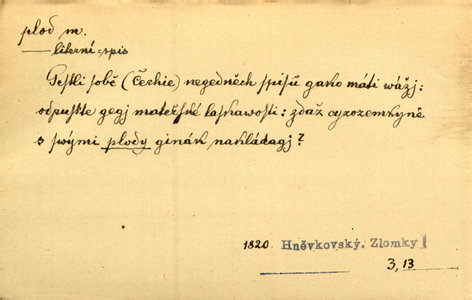 plod m.
literní=spis
Gestli sobě (Čechie) negedněch spisů gako máti wážj:
odpusťte gegj mateřské laskawosti: zdaž cyzozemkyně
s swými plody ginák nakládagj?
1820. Hněvkovský. Zlomky I
3, 13.